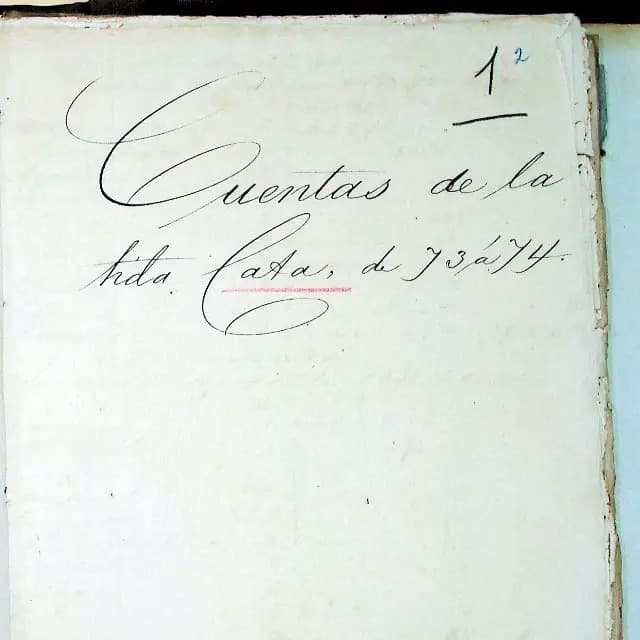 1 2
Cuentas de la
hda. Cata, de 73 á 74.